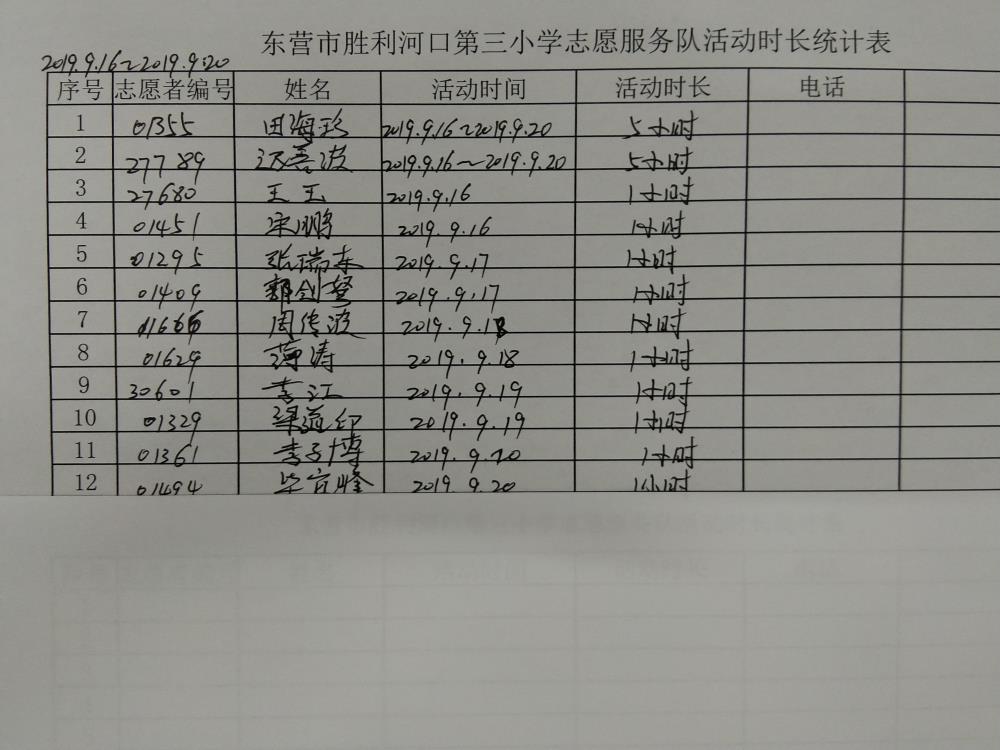 东营市胜利河口第三小学志愿服务队活动时长统计表
2019.9.16~2019.9.20
序号 志愿者编号 姓名 活动时间 活动时长 电话
1 01355 田海珍 2019.9.16~2019.9.20 5小时
2 27789 2019.9.16~2019.9.20 5小时
3 27680 王玉 2019.9.16 1小时
4 01451 宋鹏 2019.9.16 1小时
5 01295 张瑞东 2019.9.17 1小时
6 01409 郭剑 2019.9.17 1小时
7 01666 周传波 2019.9.18 1小时
8 01629 薄涛 2019.9.18 1小时
9 30601 李江 2019.9.19 1小时
10 01329 梁道印 2019.9.19 1小时
11 01361 李子博 2019.9.20 1小时
12 01494 毕宜峰 2019.9.20 1小时